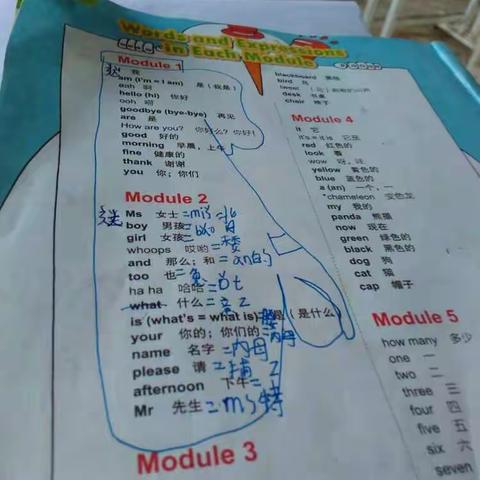 Words and Expressions
in Each Module
Module 1
我
am (I'm = I am) 是（我是）
aah 啊
hello (hi) 你好
ooh 嗬
goodbye (bye-bye) 再见
are 是
How are you? 你好么？你好！
good 好的
morning 早晨，上午
fine 健康的
thank 谢谢
you 你；你们
Module 2
Ms 女士
boy 男孩
girl 女孩
whoops 哎哟
and 那么；和
too 也
ha ha 哈哈
what 什么
is (what's = what is) 是（是什么）
your 你的；你们的
name 名字 =内母
please 请
afternoon 下午
Mr 先生 =ms特
Module 3
blackboard 黑板
bird 鸟
desk 书桌
chair 椅子
Module 4
it 它
it's = it is 它是
red 红色的
look 看
wow 呀，哇
yellow 黄色的
blue 蓝色的
a (an) 一个，一
*chameleon 变色龙
my 我的
panda 熊猫
now 现在
green 绿色的
black 黑色的
dog 狗
cat 猫
cap 帽子
Module 5
how many 多少
one 一
two 二
three 三
four 四
five 五
six 六
seven